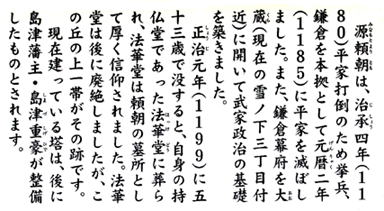 源頼朝は、治承四年(11
80)平家打倒のため挙兵、
鎌倉を本拠として元暦二年
(1185)に平家を滅ぼし
ました。また、鎌倉幕府を大
蔵(現在の雪ノ下三丁目付
近)に開いて武家政治の基礎
を築きました。
正治元年(1199)に五
十三歳で没すると、自身の持
仏堂であった法華堂に葬ら
れ、法華堂は頼朝の墓所とし
て厚く信仰されました。法華
堂は後に廃絶しましたが、こ
の丘の上一帯がその跡です。
現在建っている塔は、後に
島津藩主・島津重豪が整備
したものとされます。